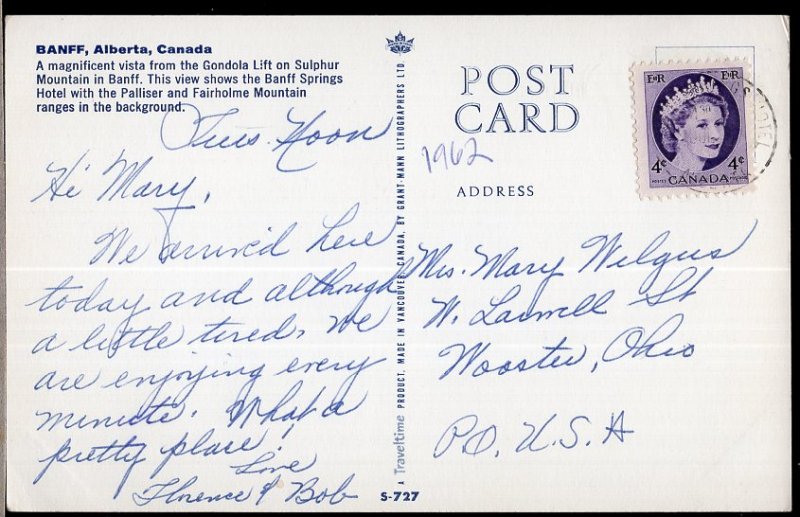 BANFF, Alberta, Canada
A magnificent vista from the Gondola Lift on Sulphur
Mountain in Banff. This view shows the Banff Springs
Hotel with the Palliser and Fairholme Mountain
ranges in the background.
Tues. Noon
Hi Mary,
We arrived here
today and although
a little tired, we
are enjoying every
minute. What a
pretty place!
Love
Florence & Bob
A Traveltime PRODUCT, MADE IN VANCOUVER, CANADA, BY GRANT-MANN LITHOGRAPHERS LTD.
S-727
POST
CARD
1962
ADDRESS
EIIR EIIR
4¢ 4¢
CANADA
HOTEL
Mrs. Mary Wilgus
W. Larwell St
Wooster, Ohio
U.S.A